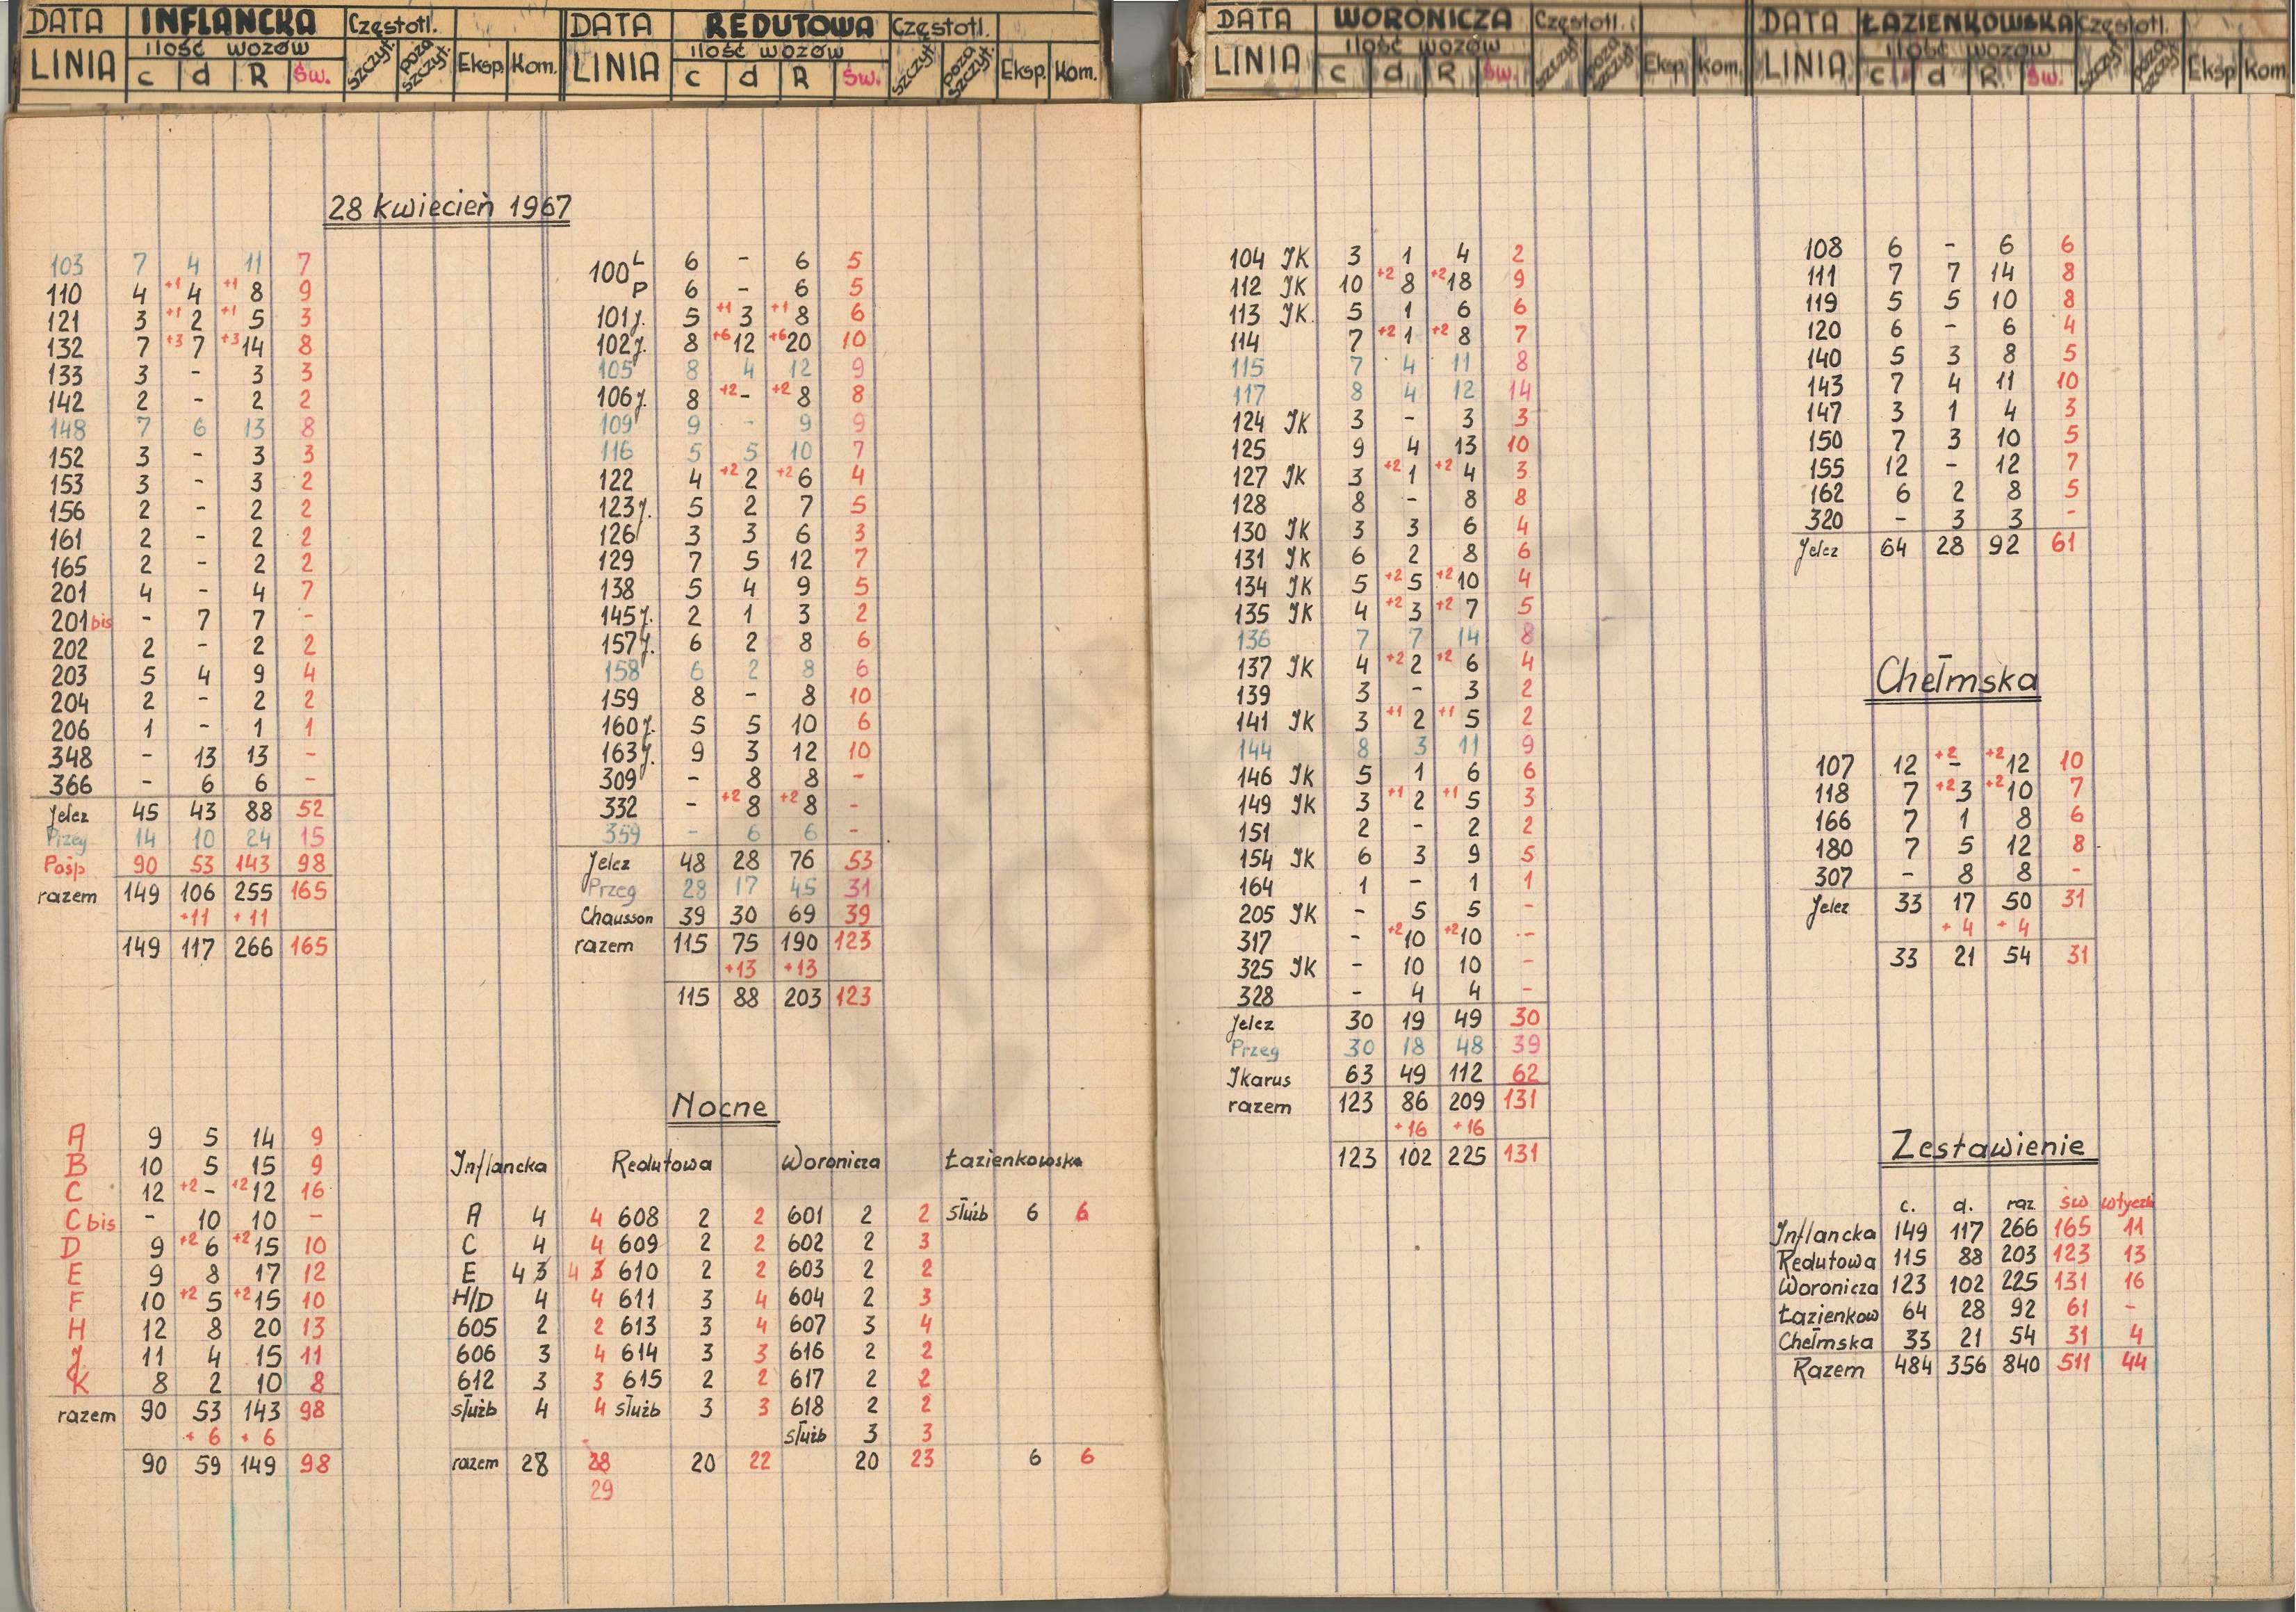 DATA INFLANCKA Częstotl.
LINIA ilość wozów szczyt. poza szczyt. Eksp. Kom.
c d R Św.
28 kwiecień 1967
103 7 4 11 7
110 4 +1 4 +1 8 9
121 3 +1 2 +1 5 3
132 7 +3 7 +3 14 8
133 3 - 3 3
142 2 - 2 2
148 7 6 13 8
152 3 - 3 3
153 3 - 3 2
156 2 - 2 2
161 2 - 2 2
165 2 - 2 2
201 4 - 4 7
201 bis - 7 7 -
202 2 - 2 2
203 5 4 9 4
204 2 - 2 2
206 1 - 1 1
348 - 13 13 -
366 - 6 6 -
Jelcz 45 43 88 52
Przeg 14 10 24 15
Pośp 90 53 143 98
razem 149 106 255 165
+11 +11
149 117 266 165
A 9 5 14 9
B 10 5 15 9
C 12 +2 - +2 12 16
C bis - 10 10 -
D 9 +2 6 +2 15 10
E 9 8 17 12
F 10 +2 5 +2 15 10
H 12 8 20 13
J 11 4 15 11
K 8 2 10 8
razem 90 53 143 98
+6 +6
90 59 149 98
DATA REDUTOWA Częstotl.
LINIA ilość wozów szczyt. poza szczyt. Eksp. Kom.
c d R Św.
100 L 6 - 6 5
P 6 - 6 5
101 J. 5 +1 3 +1 8 6
102 J. 8 +6 12 +6 20 10
105 8 4 12 9
106 J. 8 +2 - +2 8 8
109 9 - 9 9
116 5 5 10 7
122 4 +2 2 +2 6 4
123 J. 5 2 7 5
126 3 3 6 3
129 7 5 12 7
138 5 4 9 5
145 J. 2 1 3 2
157 J. 6 2 8 6
158 6 2 8 6
159 8 - 8 10
160 J. 5 5 10 6
163 J. 9 3 12 10
309 - 8 8 -
332 - +2 8 +2 8 -
359 - 6 6 -
Jelcz 48 28 76 53
Przeg 28 17 45 31
Chausson 39 30 69 39
razem 115 75 190 123
+13 +13
115 88 203 123
Nocne
Inflancka Redutowa Woronicza Łazienkowska
A 4 4 608 2 2 601 2 2 służb 6 6
C 4 4 609 2 2 602 2 3
E 4 3 4 3 610 2 2 603 2 2
H/D 4 4 611 3 4 604 2 3
605 2 2 613 3 4 607 3 4
606 3 4 614 3 3 616 2 2
612 3 3 615 2 2 617 2 2
służb 4 4 służb 3 3 618 2 2
służb 3 3
razem 28 28 20 22 20 23 6 6
29
DATA WORONICZA Częstotl.
LINIA ilość wozów szczyt. poza szczyt. Eksp. Kom.
c d R Św.
104 JK 3 1 4 2
112 JK 10 +2 8 +2 18 9
113 JK. 5 1 6 6
114 7 +2 1 +2 8 7
115 7 4 11 8
117 8 4 12 14
124 JK 3 - 3 3
125 9 4 13 10
127 JK 3 +2 1 +2 4 3
128 8 - 8 8
130 JK 3 3 6 4
131 JK 6 2 8 6
134 JK 5 +2 5 +2 10 4
135 JK 4 +2 3 +2 7 5
136 7 7 14 8
137 JK 4 +2 2 +2 6 4
139 3 - 3 2
141 JK 3 +1 2 +1 5 2
144 8 3 11 9
146 JK 5 1 6 6
149 JK 3 +1 2 +1 5 3
151 2 - 2 2
154 JK 6 3 9 5
164 1 - 1 1
205 JK - 5 5 -
317 - +2 10 +2 10 -
325 JK - 10 10 -
328 - 4 4 -
Jelcz 30 19 49 30
Przeg 30 18 48 39
Jkarus 63 49 112 62
razem 123 86 209 131
+16 +16
123 102 225 131
DATA ŁAZIENKOWSKA Częstotl.
LINIA ilość wozów szczyt. poza szczyt. Eksp. Kom.
c d R Św.
108 6 - 6 6
111 7 7 14 8
119 5 5 10 8
120 6 - 6 4
140 5 3 8 5
143 7 4 11 10
147 3 1 4 3
150 7 3 10 5
155 12 - 12 7
162 6 2 8 5
320 - 3 3 -
Jelcz 64 28 92 61
Chełmska
107 12 +2 - +2 12 10
118 7 +2 3 +2 10 7
166 7 1 8 6
180 7 5 12 8
307 - 8 8 -
Jelcz 33 17 50 31
+4 +4
33 21 54 31
Zestawienie
c. d. raz św wtyczk
Inflancka 149 117 266 165 11
Redutowa 115 88 203 123 13
Woronicza 123 102 225 131 16
Łazienkow 64 28 92 61 -
Chełmska 33 21 54 31 4
Razem 484 356 840 511 44